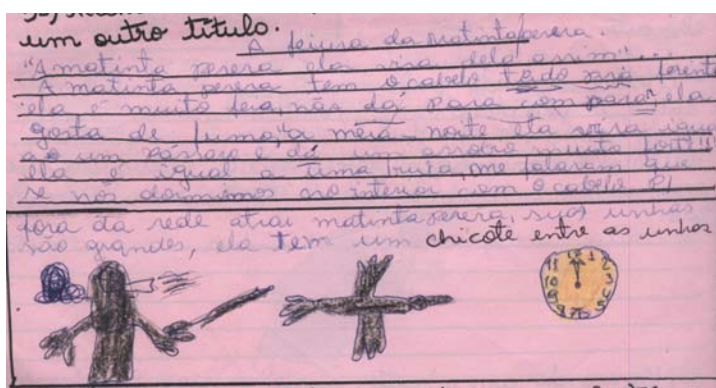 um outro título.
A feiura da matinta perera.
"A matinta perera ela vira dela assim"...
A matinta perera tem o cabelo todo pra frente
ela é muito feia, não dá para comparar ela
gosta de fumo, "a meia-noite ela vira igual
ao um pássaro e dá um assobio muito forte"
ela é igual a uma bruxa, me falaram que
se nós dormimos no interior com o cabelo p/
fora da rede atrai matinta perera, suas unhas
são grandes, ela tem um chicote entre as unhas
11 12 1 2 3 4 5 6 7 8 9 10